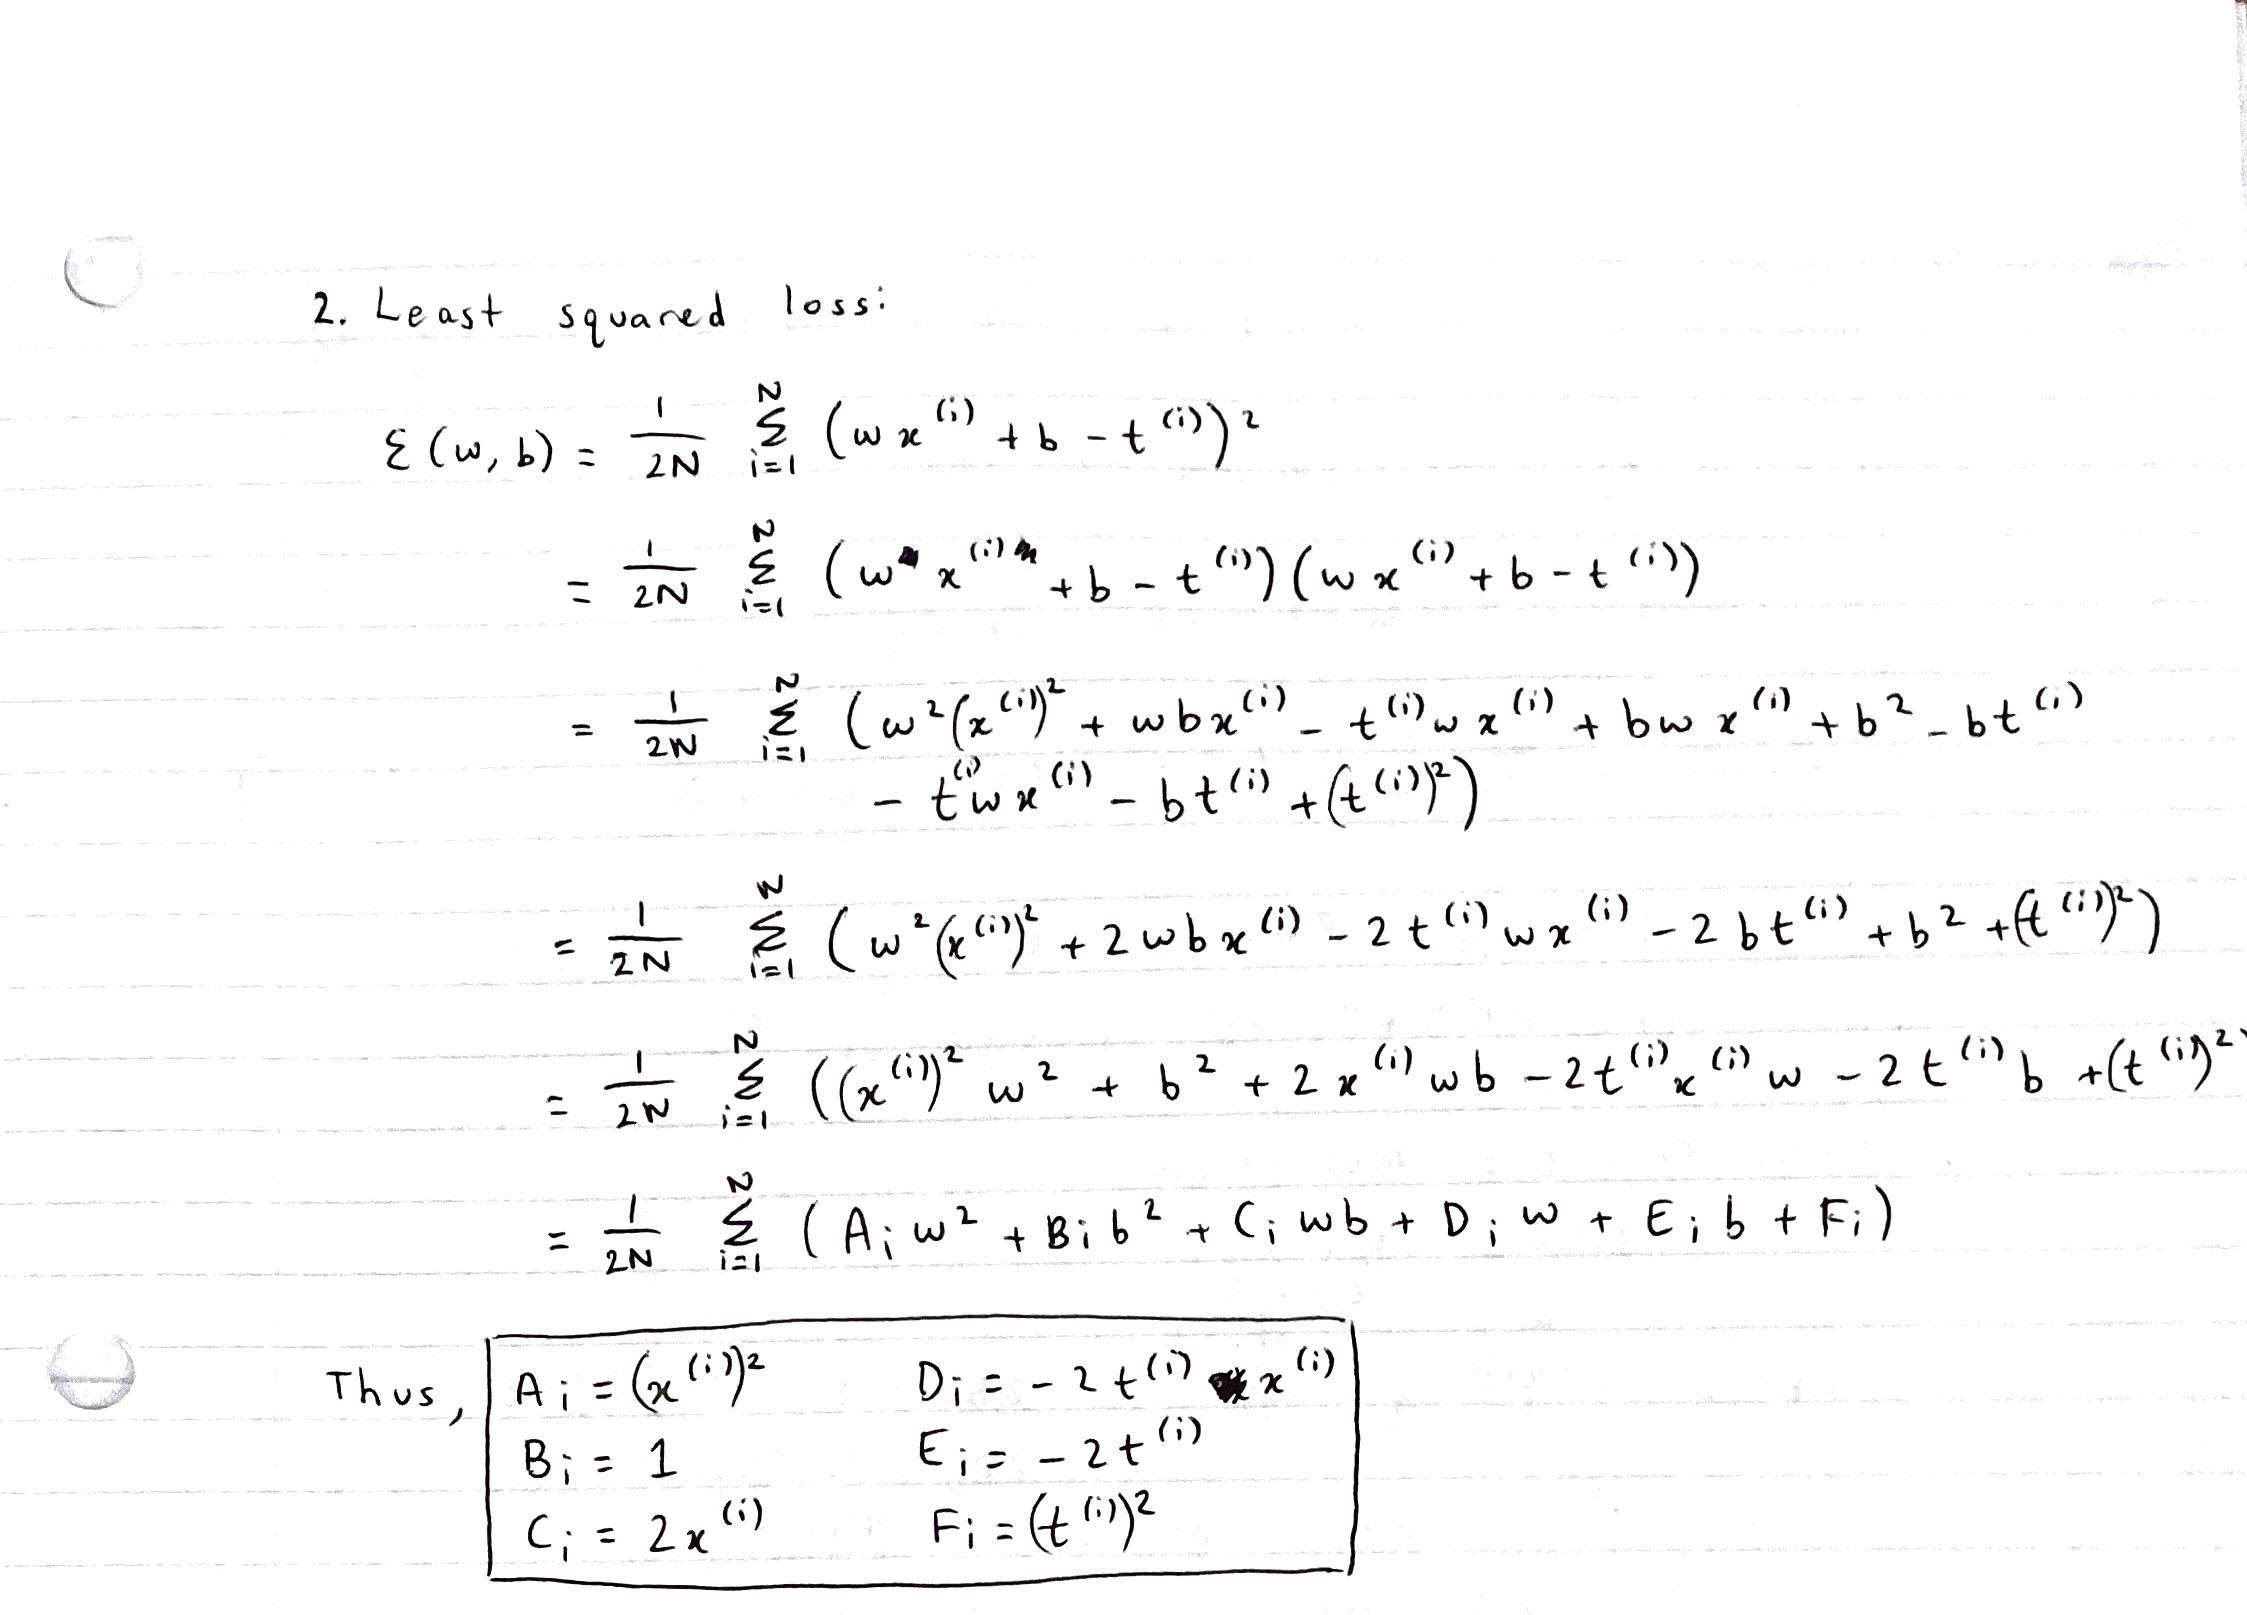 2. Least squared loss:
ℰ(w, b) = 1/2N Σ_{i=1}^{N} (wx^(i) + b - t^(i))^2
= 1/2N Σ_{i=1}^{N} (w x^(i) + b - t^(i))(wx^(i) + b - t^(i))
= 1/2N Σ_{i=1}^{N} (w^2(x^(i))^2 + wbx^(i) - t^(i)wx^(i) + bwx^(i) + b^2 - bt^(i)
- t^(i)wx^(i) - bt^(i) + (t^(i))^2)
= 1/2N Σ_{i=1}^{N} (w^2(x^(i))^2 + 2wbx^(i) - 2t^(i)wx^(i) - 2bt^(i) + b^2 + (t^(i))^2)
= 1/2N Σ_{i=1}^{N} ((x^(i))^2 w^2 + b^2 + 2x^(i)wb - 2t^(i)x^(i)w - 2t^(i)b + (t^(i))^2)
= 1/2N Σ_{i=1}^{N} (A_i w^2 + B_i b^2 + C_i wb + D_i w + E_i b + F_i)
Thus, A_i = (x^(i))^2 D_i = -2t^(i) x^(i)
B_i = 1 E_i = -2t^(i)
C_i = 2x^(i) F_i = (t^(i))^2